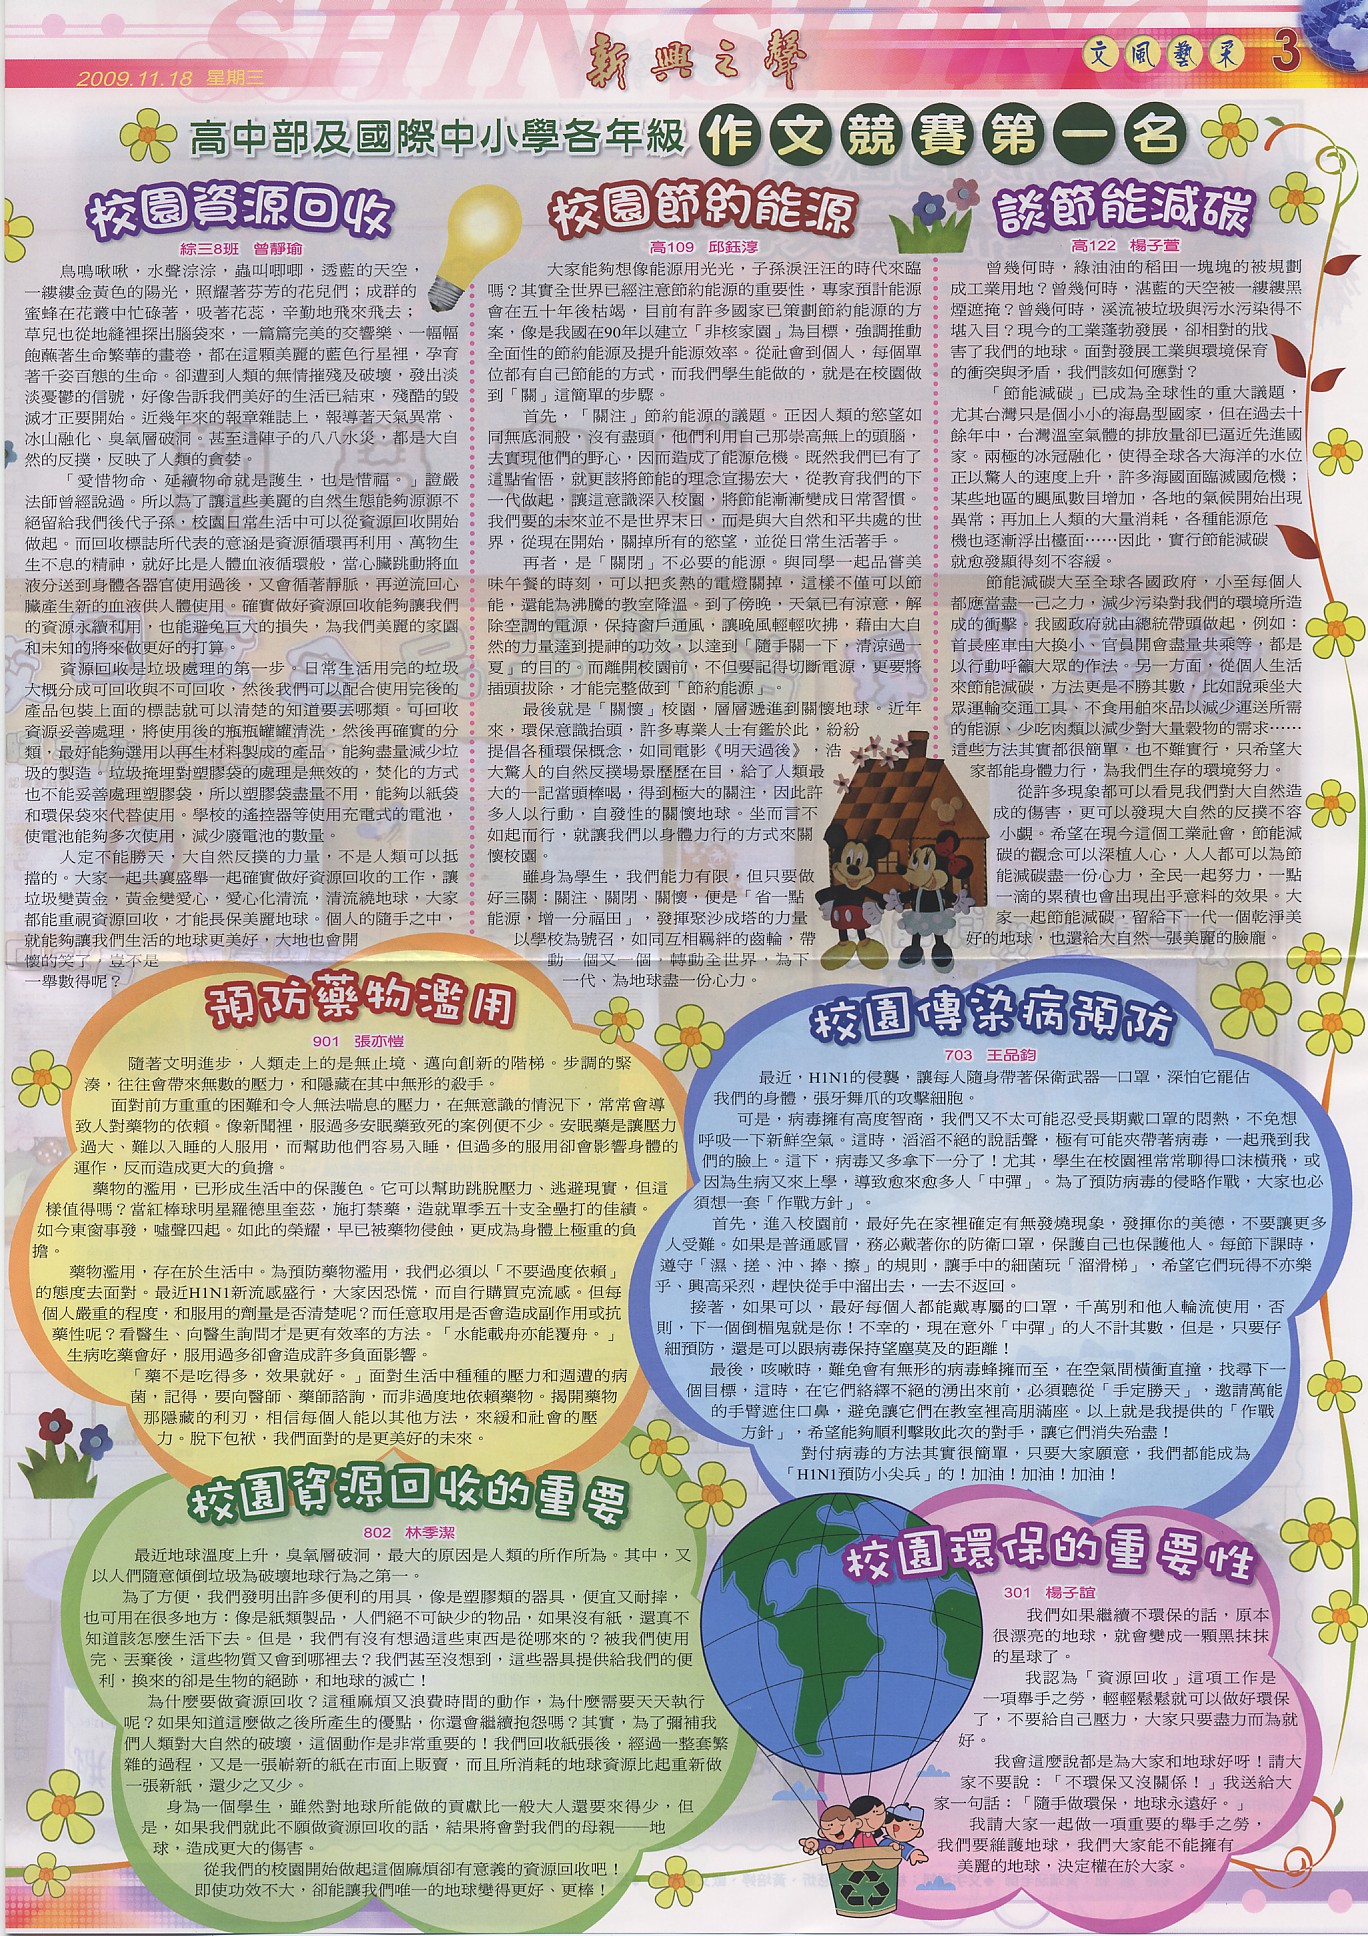 2009.11.18 星期三
新興之聲
文風藝采 3
高中部及國際中小學各年級 作文競賽第一名
校園資源回收
綜三8班 曾靜瑜
鳥鳴啾啾，水聲淙淙，蟲叫唧唧，透藍的天空，
一縷縷金黃色的陽光，照耀著芬芳的花兒們；成群的
蜜蜂在花叢中忙碌著，吸著花蕊，辛勤地飛來飛去；
草兒也從地縫裡探出腦袋來，一篇篇完美的交響樂、一幅幅
飽蘸著生命繁華的畫卷，都在這顆美麗的藍色行星裡，孕育
著千姿百態的生命。卻遭到人類的無情摧殘及破壞，發出淡
淡憂鬱的信號，好像告訴我們美好的生活已結束，殘酷的毀
滅才正要開始。近幾年來的報章雜誌上，報導著天氣異常、
冰山融化、臭氧層破洞。甚至這陣子的八八水災，都是大自
然的反撲，反映了人類的貪婪。
「愛惜物命、延續物命就是護生，也是惜福。」證嚴
法師曾經說過。所以為了讓這些美麗的自然生態能夠源源不
絕留給我們後代子孫，校園日常生活中可以從資源回收開始
做起。而回收標誌所代表的意涵是資源循環再利用、萬物生
生不息的精神，就好比是人體血液循環般，當心臟跳動將血
液分送到身體各器官使用過後，又會循著靜脈，再逆流回心
臟產生新的血液供人體使用。確實做好資源回收能夠讓我們
的資源永續利用，也能避免巨大的損失，為我們美麗的家園
和未知的將來做更好的打算。
資源回收是垃圾處理的第一步。日常生活用完的垃圾
大概分成可回收與不可回收，然後我們可以配合使用完後的
產品包裝上面的標誌就可以清楚的知道要丟哪類。可回收
資源妥善處理，將使用後的瓶瓶罐罐清洗，然後再確實的分
類，最好能夠選用以再生材料製成的產品，能夠盡量減少垃
圾的製造。垃圾掩埋對塑膠袋的處理是無效的，焚化的方式
也不能妥善處理塑膠袋，所以塑膠袋盡量不用，能夠以紙袋
和環保袋來代替使用。學校的遙控器等使用充電式的電池，
使電池能夠多次使用，減少廢電池的數量。
人定不能勝天，大自然反撲的力量，不是人類可以抵
擋的。大家一起共襄盛舉一起確實做好資源回收的工作，讓
垃圾變黃金，黃金變愛心，愛心化清流，清流繞地球，大家
都能重視資源回收，才能長保美麗地球。個人的隨手之中，
就能夠讓我們生活的地球更美好，大地也會開
懷的笑了，豈不是
一舉數得呢？
校園節約能源
高109 邱鈺淳
大家能夠想像能源用光光，子孫淚汪汪的時代來臨
嗎？其實全世界已經注意節約能源的重要性，專家預計能源
會在五十年後枯竭，目前有許多國家已策劃節約能源的方
案，像是我國在90年以建立「非核家園」為目標，強調推動
全面性的節約能源及提升能源效率。從社會到個人，每個單
位都有自己節能的方式，而我們學生能做的，就是在校園做
到「關」這簡單的步驟。
首先，「關注」節約能源的議題。正因人類的慾望如
同無底洞般，沒有盡頭，他們利用自己那崇高無上的頭腦，
去實現他們的野心，因而造成了能源危機。既然我們已有了
這點省悟，就更該將節能的理念宣揚宏大，從教育我們的下
一代做起，讓這意識深入校園，將節能漸漸變成日常習慣。
我們要的未來並不是世界末日，而是與大自然和平共處的世
界，從現在開始，關掉所有的慾望，並從日常生活著手。
再者，是「關閉」不必要的能源。與同學一起品嘗美
味午餐的時刻，可以把炙熱的電燈關掉，這樣不僅可以節
能，還能為沸騰的教室降溫。到了傍晚，天氣已有涼意，解
除空調的電源，保持窗戶通風，讓晚風輕輕吹拂，藉由大自
然的力量達到提神的功效，以達到「隨手關一下，清涼過一
夏」的目的。而離開校園前，不但要記得切斷電源，更要將
插頭拔除，才能完整做到「節約能源」。
最後就是「關懷」校園，層層遞進到關懷地球。近年
來，環保意識抬頭，許多專業人士有鑑於此，紛紛
提倡各種環保概念，如同電影《明天過後》，浩
大驚人的自然反撲場景歷歷在目，給了人類最
大的一記當頭棒喝，得到極大的關注，因此許
多人以行動，自發性的關懷地球。坐而言不
如起而行，就讓我們以身體力行的方式來關
懷校園。
雖身為學生，我們能力有限，但只要做
好三關：關注、關閉、關懷，便是「省一點
能源，增一分福田」，發揮聚沙成塔的力量
以學校為號召，如同互相羈絆的齒輪，帶
動一個又一個，轉動全世界，為下
一代、為地球盡一份心力。
談節能減碳
高122 楊子萱
曾幾何時，綠油油的稻田一塊塊的被規劃
成工業用地？曾幾何時，湛藍的天空被一縷縷黑
煙遮掩？曾幾何時，溪流被垃圾與污水污染得不
堪入目？現今的工業蓬勃發展，卻相對的戕
害了我們的地球。面對發展工業與環境保育
的衝突與矛盾，我們該如何應對？
「節能減碳」已成為全球性的重大議題，
尤其台灣只是個小小的海島型國家，但在過去十
餘年中，台灣溫室氣體的排放量卻已逼近先進國
家。兩極的冰冠融化，使得全球各大海洋的水位
正以驚人的速度上升，許多海國面臨滅國危機；
某些地區的颶風數目增加，各地的氣候開始出現
異常；再加上人類的大量消耗，各種能源危
機也逐漸浮出檯面……因此，實行節能減碳
就愈發顯得刻不容緩。
節能減碳大至全球各國政府，小至每個人
都應當盡一己之力，減少污染對我們的環境所造
成的衝擊。我國政府就由總統帶頭做起，例如：
首長座車由大換小、官員開會盡量共乘等，都是
以行動呼籲大眾的作法。另一方面，從個人生活
來節能減碳，方法更是不勝其數，比如說乘坐大
眾運輸交通工具、不食用舶來品以減少運送所需
的能源、少吃肉類以減少對大量穀物的需求……
這些方法其實都很簡單，也不難實行，只希望大
家都能身體力行，為我們生存的環境努力。
從許多現象都可以看見我們對大自然造
成的傷害，更可以發現大自然的反撲不容
小覷。希望在現今這個工業社會，節能減
碳的觀念可以深植人心，人人都可以為節
能減碳盡一份心力，全民一起努力，一點
一滴的累積也會出現出乎意料的效果。大
家一起節能減碳，留給下一代一個乾淨美
好的地球，也還給大自然一張美麗的臉龐。
預防藥物濫用
901 張亦愷
隨著文明進步，人類走上的是無止境、邁向創新的階梯。步調的緊
湊，往往會帶來無數的壓力，和隱藏在其中無形的殺手。
面對前方重重的困難和令人無法喘息的壓力，在無意識的情況下，常常會導
致人對藥物的依賴。像新聞裡，服過多安眠藥致死的案例便不少。安眠藥是讓壓力
過大、難以入睡的人服用，而幫助他們容易入睡，但過多的服用卻會影響身體的
運作，反而造成更大的負擔。
藥物的濫用，已形成生活中的保護色。它可以幫助跳脫壓力、逃避現實，但這
樣值得嗎？當紅棒球明星羅德里奎茲，施打禁藥，造就單季五十支全壘打的佳績。
如今東窗事發，噓聲四起。如此的榮耀，早已被藥物侵蝕，更成為身體上極重的負
擔。
藥物濫用，存在於生活中。為預防藥物濫用，我們必須以「不要過度依賴」
的態度去面對。最近H1N1新流感盛行，大家因恐慌，而自行購買克流感。但每
個人嚴重的程度，和服用的劑量是否清楚呢？而任意取用是否會造成副作用或抗
藥性呢？看醫生、向醫生詢問才是更有效率的方法。「水能載舟亦能覆舟。」
生病吃藥會好，服用過多卻會造成許多負面影響。
「藥不是吃得多，效果就好。」面對生活中種種的壓力和週遭的病
菌，記得，要向醫師、藥師諮詢，而非過度地依賴藥物。揭開藥物
那隱藏的利刃，相信每個人能以其他方法，來緩和社會的壓
力。脫下包袱，我們面對的是更美好的未來。
校園傳染病預防
703 王品鈞
最近，H1N1的侵襲，讓每人隨身帶著保衛武器—口罩，深怕它罷佔
我們的身體，張牙舞爪的攻擊細胞。
可是，病毒擁有高度智商，我們又不太可能忍受長期戴口罩的悶熱，不免想
呼吸一下新鮮空氣。這時，滔滔不絕的說話聲，極有可能夾帶著病毒，一起飛到我
們的臉上。這下，病毒又多拿下一分了！尤其，學生在校園裡常常聊得口沫橫飛，或
因為生病又來上學，導致愈來愈多人「中彈」。為了預防病毒的侵略作戰，大家也必
須想一套「作戰方針」。
首先，進入校園前，最好先在家裡確定有無發燒現象，發揮你的美德，不要讓更多
人受難。如果是普通感冒，務必戴著你的防衛口罩，保護自己也保護他人。每節下課時，
遵守「濕、搓、沖、捧、擦」的規則，讓手中的細菌玩「溜滑梯」，希望它們玩得不亦樂
乎、興高采烈，趕快從手中溜出去，一去不返回。
接著，如果可以，最好每個人都能戴專屬的口罩，千萬別和他人輪流使用，否
則，下一個倒楣鬼就是你！不幸的，現在意外「中彈」的人不計其數，但是，只要仔
細預防，還是可以跟病毒保持望塵莫及的距離！
最後，咳嗽時，難免會有無形的病毒蜂擁而至，在空氣間橫衝直撞，找尋下一
個目標，這時，在它們絡繹不絕的湧出來前，必須聽從「手定勝天」，邀請萬能
的手臂遮住口鼻，避免讓它們在教室裡高朋滿座。以上就是我提供的「作戰
方針」，希望能夠順利擊敗此次的對手，讓它們消失殆盡！
對付病毒的方法其實很簡單，只要大家願意，我們都能成為
「H1N1預防小尖兵」的！加油！加油！加油！
校園資源回收的重要
802 林季潔
最近地球溫度上升，臭氧層破洞，最大的原因是人類的所作所為。其中，又
以人們隨意傾倒垃圾為破壞地球行為之第一。
為了方便，我們發明出許多便利的用具，像是塑膠類的器具，便宜又耐摔，
也可用在很多地方：像是紙類製品，人們絕不可缺少的物品，如果沒有紙，還真不
知道該怎麼生活下去。但是，我們有沒有想過這些東西是從哪來的？被我們使用
完、丟棄後，這些物質又會到哪裡去？我們甚至沒想到，這些器具提供給我們的便
利，換來的卻是生物的絕跡，和地球的滅亡！
為什麼要做資源回收？這種麻煩又浪費時間的動作，為什麼需要天天執行
呢？如果知道這麼做之後所產生的優點，你還會繼續抱怨嗎？其實，為了彌補我
們人類對大自然的破壞，這個動作是非常重要的！我們回收紙張後，經過一整套繁
雜的過程，又是一張嶄新的紙在市面上販賣，而且所消耗的地球資源比起重新做
一張新紙，還少之又少。
身為一個學生，雖然對地球所能做的貢獻比一般大人還要來得少，但
是，如果我們就此不願做資源回收的話，結果將會對我們的母親——地
球，造成更大的傷害。
從我們的校園開始做起這個麻煩卻有意義的資源回收吧！
即使功效不大，卻能讓我們唯一的地球變得更好、更棒！
校園環保的重要性
301 楊子誼
我們如果繼續不環保的話，原本
很漂亮的地球，就會變成一顆黑抹抹
的星球了。
我認為「資源回收」這項工作是
一項舉手之勞，輕輕鬆鬆就可以做好環保
了，不要給自己壓力，大家只要盡力而為就
好。
我會這麼說都是為大家和地球好呀！請大
家不要說：「不環保又沒關係！」我送給大
家一句話：「隨手做環保，地球永遠好。」
我請大家一起做一項重要的舉手之勞，
我們要維護地球，我們大家能不能擁有
美麗的地球，決定權在於大家。